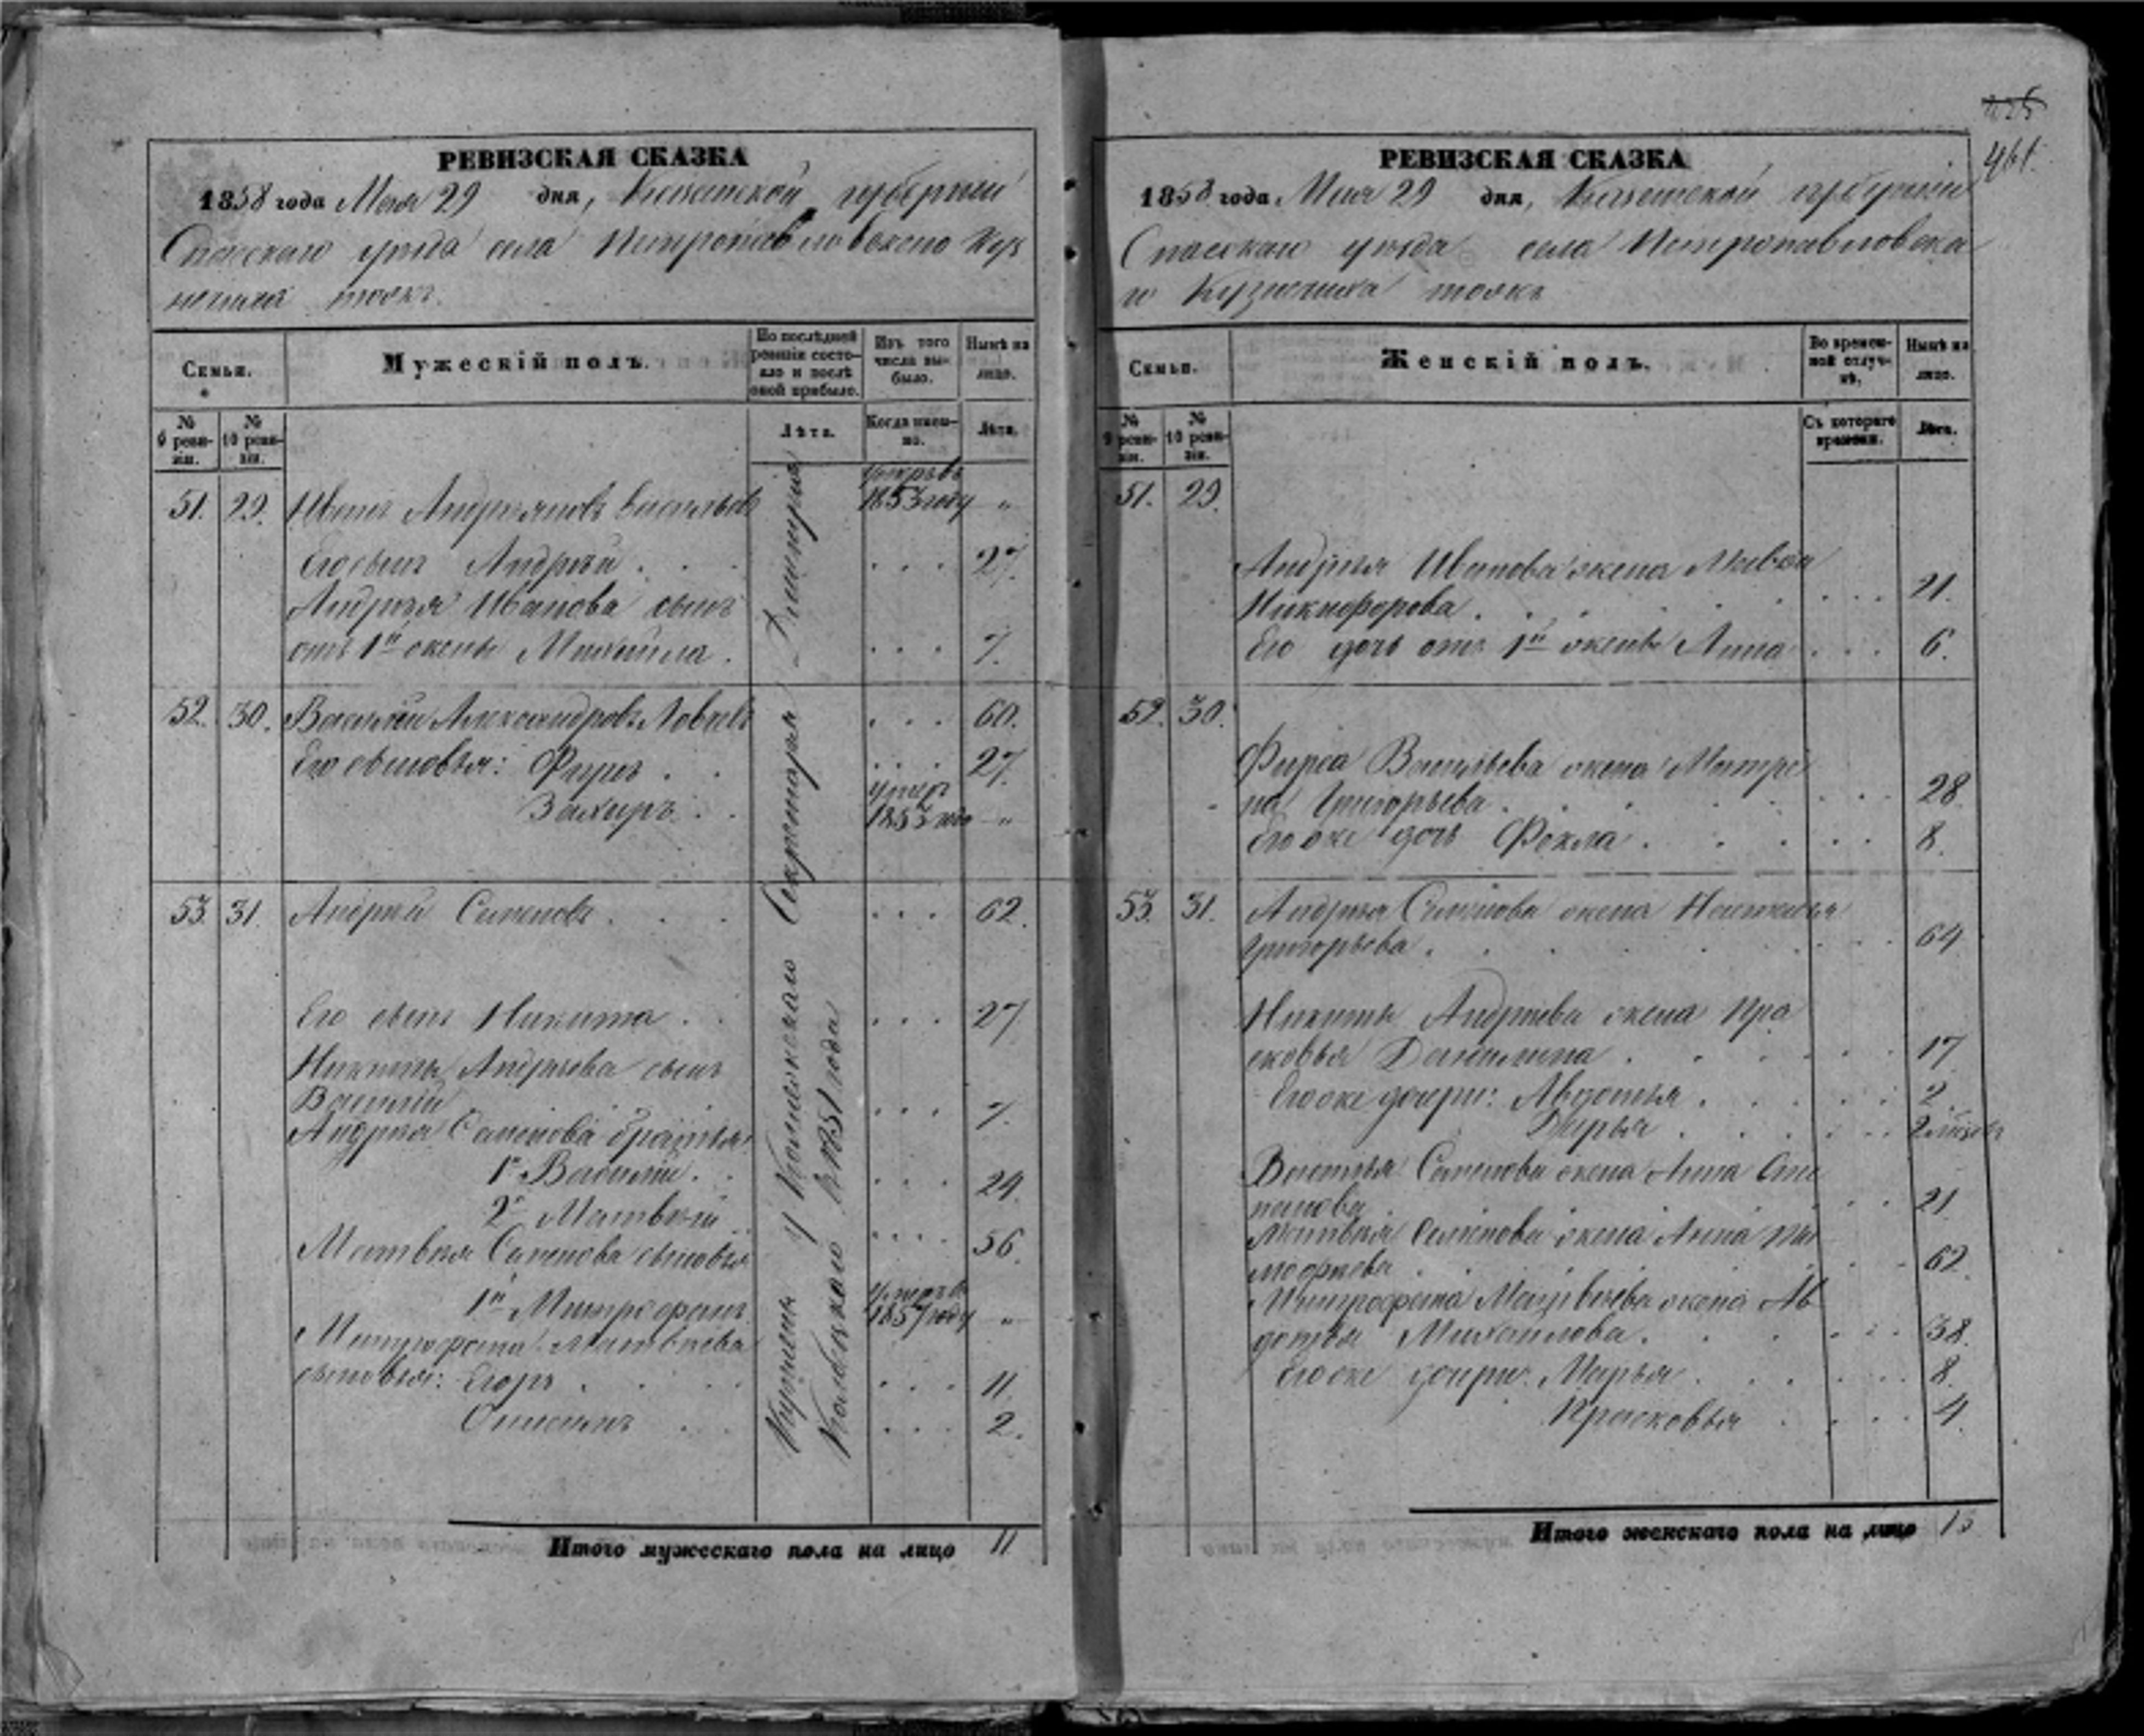 461.
РЕВИЗСКАЯ СКАЗКА
1858 года Мая 29 дня, Казанской губернии
Спасскаго уѣзда села Петропавловскаго Куз
нечиха тожъ.
Семьи.
Мужескій полъ.
По послѣдней ревизіи состояло и послѣ оной прибыло.
Изъ того числа выбыло.
Нынѣ на лицо.
№ 9 ревизіи.
№ 10 ревизіи.
Лѣта.
Когда именно.
Лѣта.
51. 29. Иванъ Андреяновъ умеръ въ 1853 году „
Его сынъ Андрей . . . 27.
Андрея Иванова сынъ
отъ 1й жены Михайла . . . . 7.
52. 30. Василий Александровъ . . . 60.
Его сыновья: Фирсъ . . . 27.
Захаръ . . умеръ 1853 году „
53. 31. Андрей Семеновъ . . . 62.
Его сынъ Никита . . . 27
Никиты Андреева сынъ
Василий . . . 7.
Андрея Семенова братья:
1й Василий . . . . 29.
2й Матвей . . . . 56.
Матвея Семенова сыновья
1й Митрофанъ умеръ въ 1857 году „
Митрофана Матвеева
сыновья: Егоръ . . . 11.
Онисимъ . . . 2.
Куплены у Секретаря Дмитрия
1851 года
Итого мужескаго пола на лицо 11
РЕВИЗСКАЯ СКАЗКА
1858 года Мая 29 дня, Казанской губернии
Спасскаго уѣзда села Петропавловска
го Кузнечиха тожъ
Семьи.
Женскій полъ.
Во временной отлучкѣ.
Нынѣ на лицо.
№ 9 ревизіи.
№ 10 ревизіи.
Съ котораго времени.
Лѣта.
51. 29.
Андрея Иванова жена
Никифорова . . . 21.
Его дочь отъ 1й жены Анна . . . 6.
52. 30.
Фирса Васильева жена Матре
на Григорьева . . . 28
Его же дочь Фекла . . . 8.
53. 31. Андрея Семенова жена Наталья
Григорьева . . . 64
Никиты Андреева жена Пра
сковья Данилина . . . 17
Его же дочери: Авдотья . . . 2
Дарья . . . 2 мѣсяца
Василья Семенова жена Анна Сте
панова . . . 21
Матвея Семенова жена Анна Ти
мофеева . . . 62.
Митрофана Матвеева жена Ав
дотья Михайлова . . . 38.
Его же дочери: Марья . . . 8.
Прасковья . . . 4.
Итого женскаго пола на лицо 13